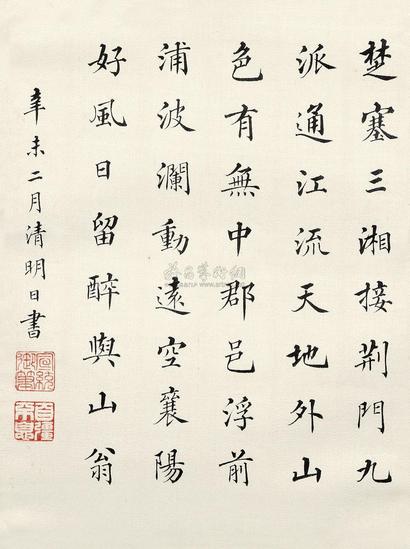 楚塞三湘接荆門九
派通江流天地外山
色有無中郡邑浮前
浦波瀾動遠空襄陽
好風日留醉與山翁
辛未二月清明日書
宣統御筆